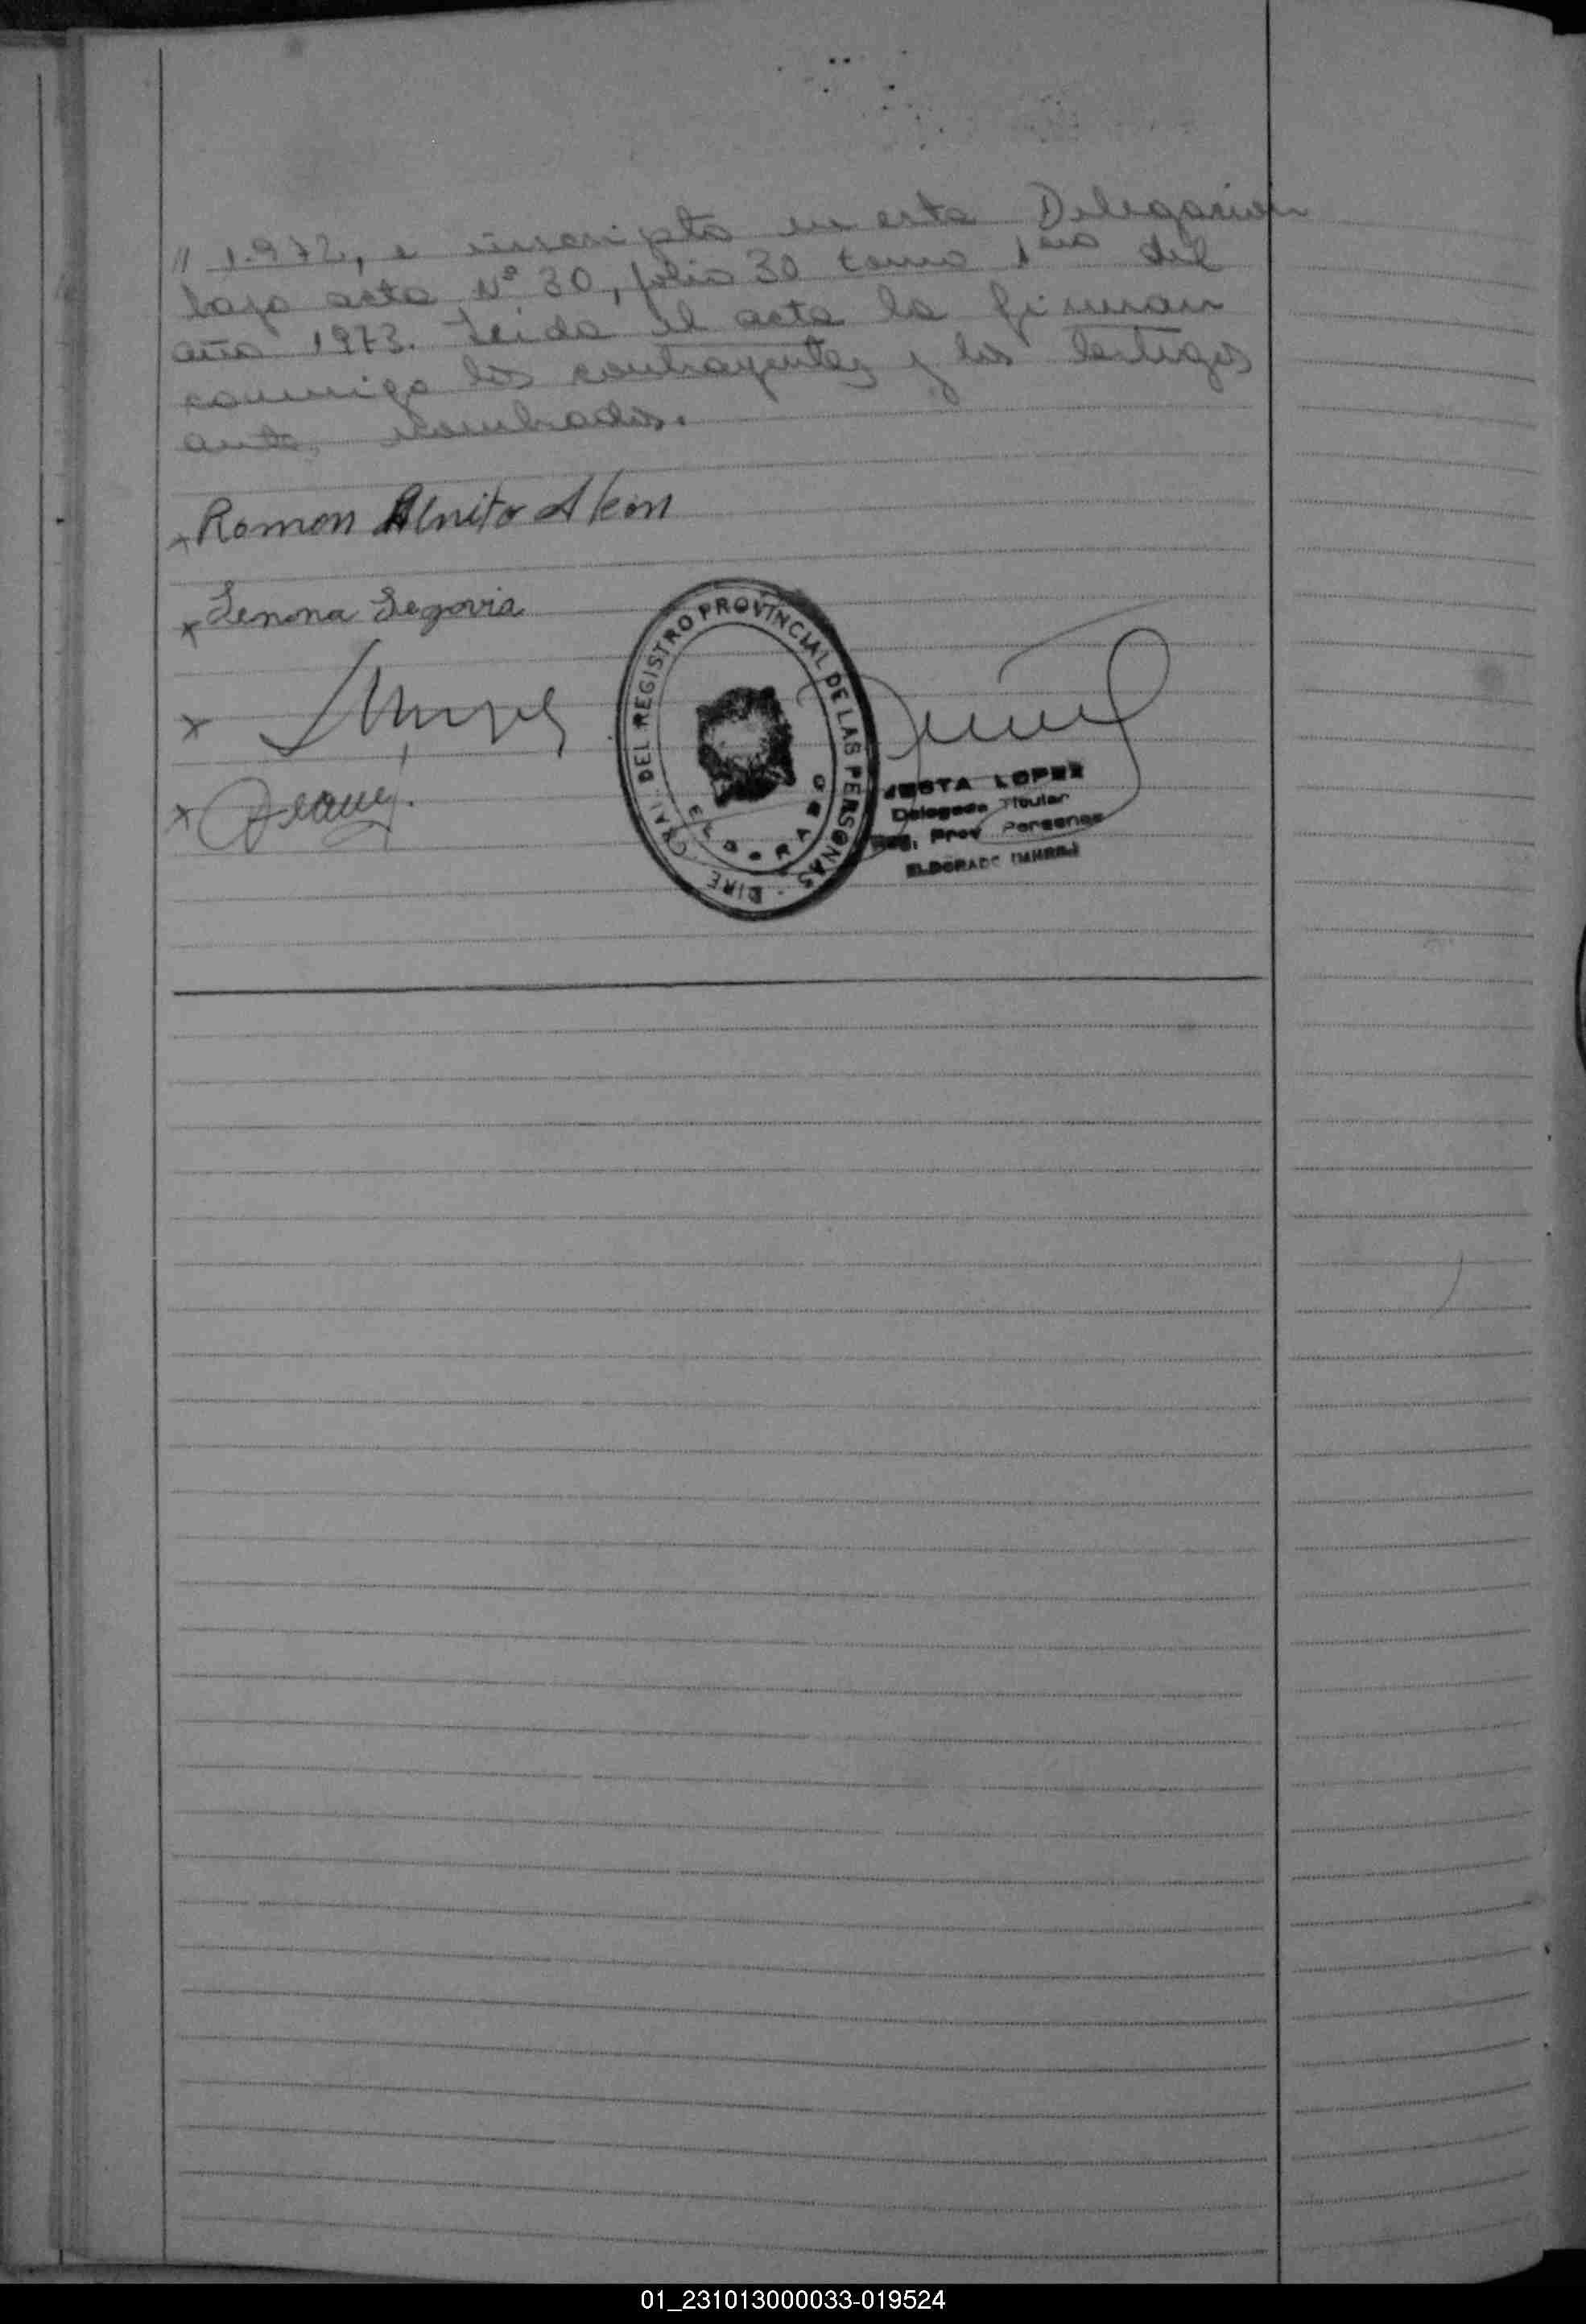 // 1.972, e inscripto en esta Delegacion
bajo acta Nº 30, folio 30 tomo 1ero del
año 1973. Leida el acta la firman
conmigo los contrayentes y los testigos
antes nombrados.
x Ramon Benito
x Segovia
x
x
DIRE. GRAL. DEL REGISTRO PROVINCIAL DE LAS PERSONAS
ELDORADO
LOPEZ
Delegada Titular
Reg. Prov Personas
ELDORADO
01_231013000033-019524